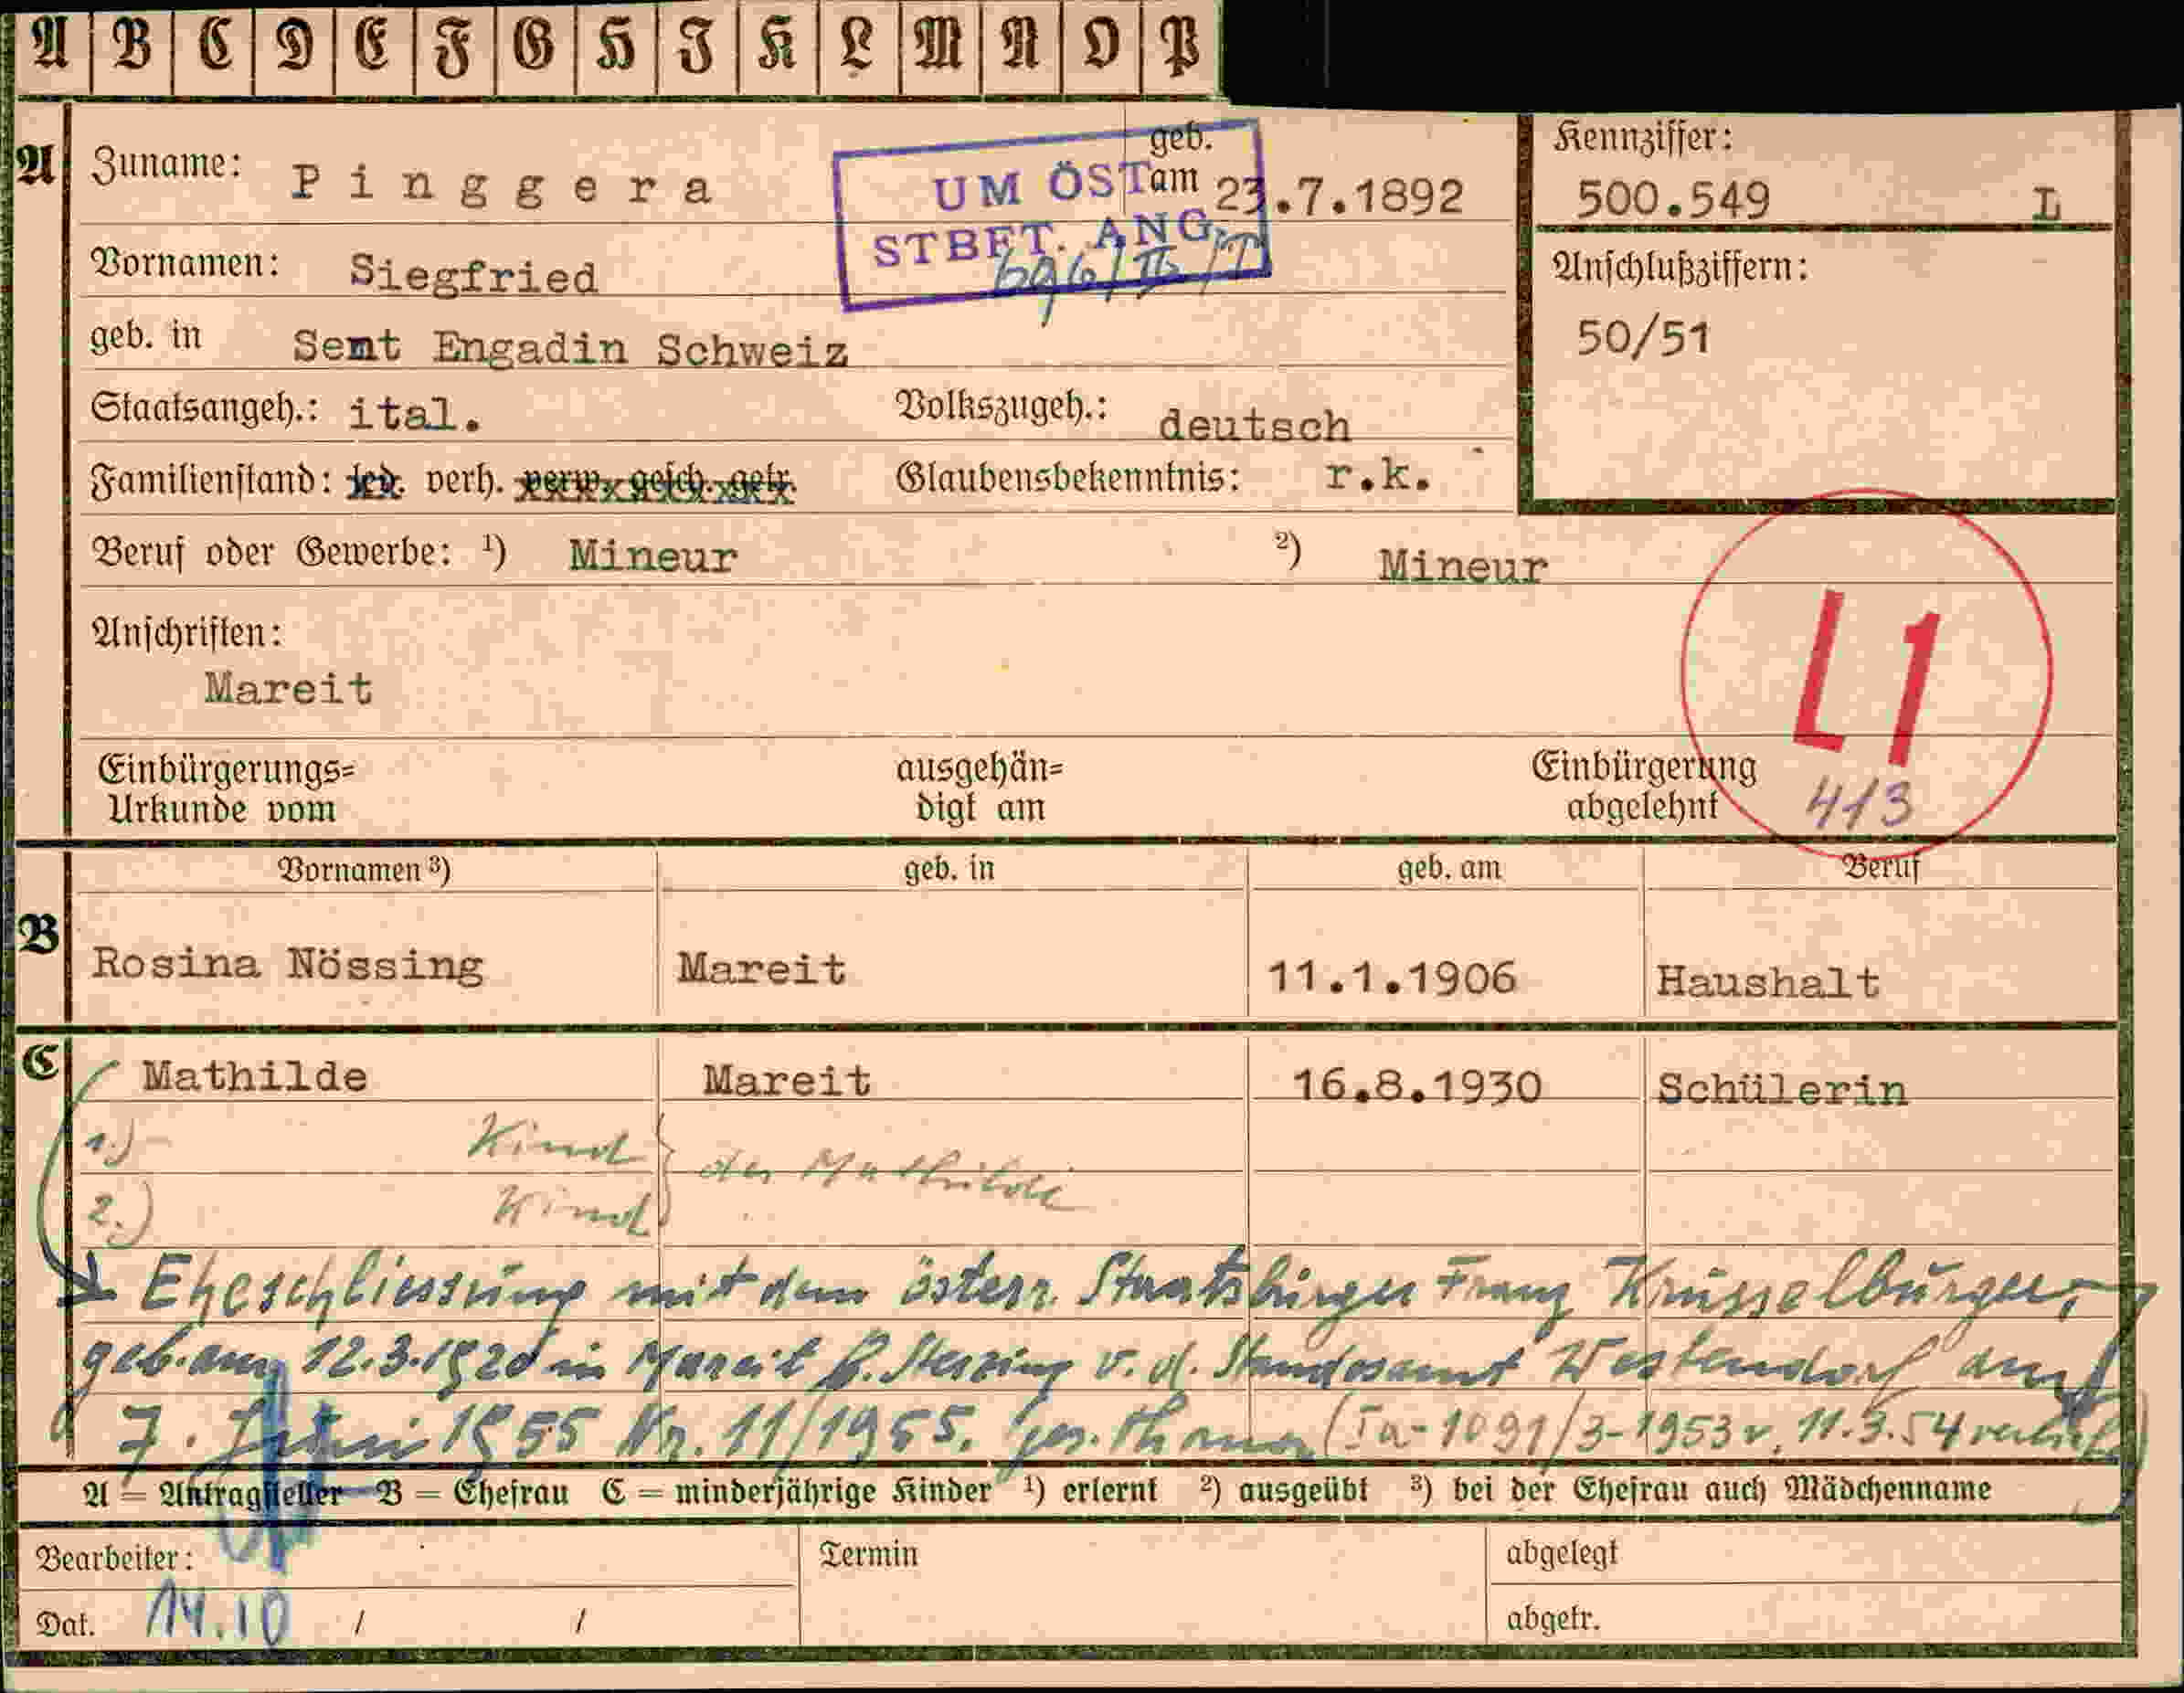 A B C D E F G H I K L M N O P
A Zuname: Pinggera geb. am 23.7.1892
UM ÖST
STBET. ANG.
Kennziffer:
500.549 L
Vornamen: Siegfried
Anschlußziffern:
50/51
geb. in Sent Engadin Schweiz
Staatsangeh.: ital. Volkszugeh.: deutsch
Familienstand: led. verh. verw. gesch. getr. Glaubensbekenntnis: r.k.
Beruf oder Gewerbe: ¹) Mineur ²) Mineur
Anschriften:
Mareit
L1
413
Einbürgerungs= ausgehän= Einbürgerung
Urkunde vom digt am abgelehnt
Vornamen ³) geb. in geb. am Beruf
B Rosina Nössing Mareit 11.1.1906 Haushalt
C Mathilde Mareit 16.8.1930 Schülerin
1.) Kind } der Mathilde
2.) Kind
Eheschliessung mit dem österr. Staatsbürger Franz Krüsselburger,
geb. am 12.3.1920 in Mareit b. Sterzing v. d. Standesamt Westendorf am
7. Juni 1955 Nr. 11/1955. (Ia-1091/3-1953 v. 11.3.54
A = Antragsteller B = Ehefrau C = minderjährige Kinder ¹) erlernt ²) ausgeübt ³) bei der Ehefrau auch Mädchenname
Bearbeiter: Termin abgelegt
Dat. 14.10 / / abgetr.